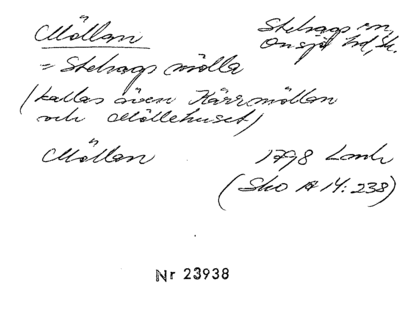 Möllan Stehags sn,
Onsjö hd, Sk.
= Stehags mölla
(kallas även Kärrmöllan
och Möllehuset)
Möllan 1798 Lantm
(Sko A 14:238)
Nr 23938